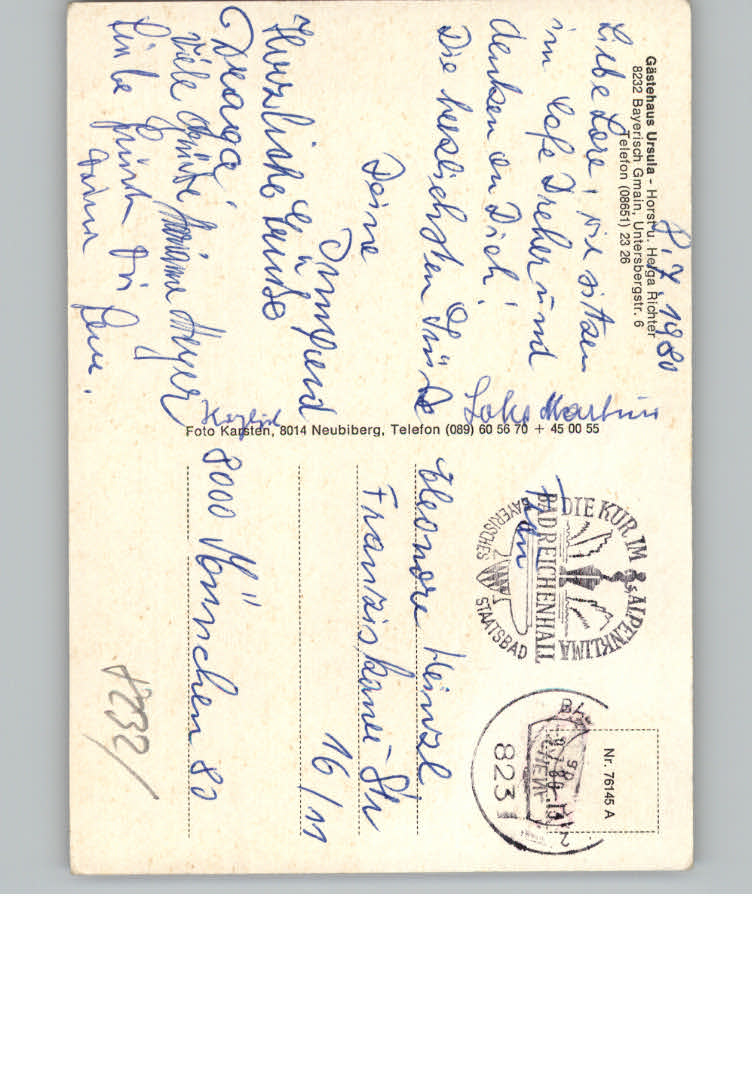 Gästehaus Ursula - Horst u. Helga Richter
8232 Bayerisch Gmain, Untersbergstr. 6
Telefon (08651) 23 26
8.7.1980
Liebe Lore, wir sitzen
im Cafe Dreher und
denken an Dich!
Die herzlichsten Grüße
Deine
Irmgard
Herzliche Grüße
Draga
Viele Grüße Meyer
Liebe Grüße Dir
Foto Karsten, 8014 Neubiberg, Telefon (089) 60 56 70 + 45 00 55
DIE KUR IM ALPENKLIMA
BAD REICHENHALL
BAYERISCHES STAATSBAD
8231
Nr. 76145 A
Eleonore Heinzl
Franziskaner-Str
16/11
8000 München 80
8232/